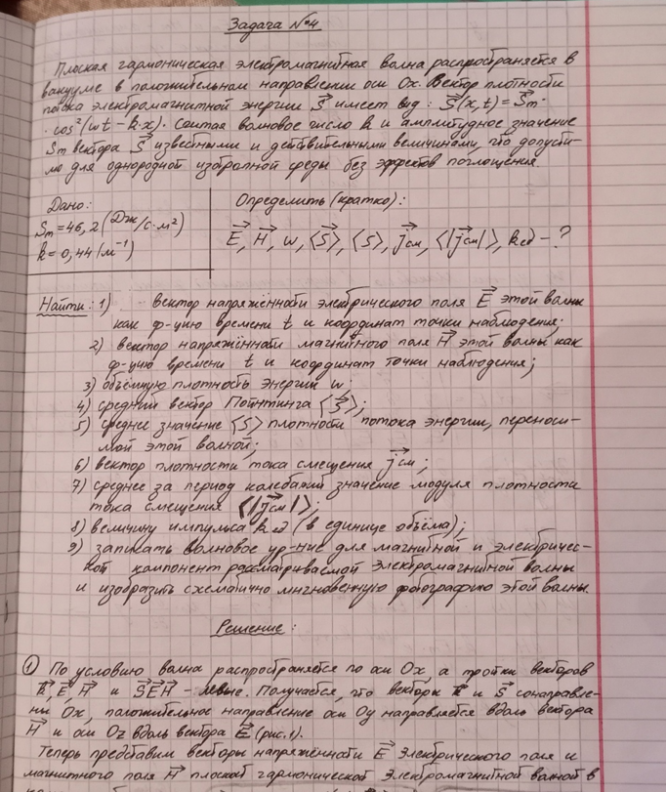 Задача №4
Плоская гармоническая электромагнитная волна распространяется в
вакууме в положительном направлении оси Ox. Вектор плотности
потока электромагнитной энергии S⃗ имеет вид: S⃗(x,t)=S⃗m·
·cos²(ωt-k·x). Считая волновое число k и амплитудное значение
Sm вектора S⃗ известными и действительными величинами, что допусти-
мо для однородной изотропной среды без эффектов поглощения.
Дано:
Sm=46,2 (Дж/с·м²)
k=0,44 (м⁻¹)
Определить (кратко):
E⃗, H⃗, w, ⟨S⃗⟩, ⟨S⟩, j⃗см, ⟨|j⃗см|⟩, kед - ?
Найти: 1) вектор напряжённости электрического поля E⃗ этой волны
как ф-цию времени t и координат точки наблюдения;
2) вектор напряжённости магнитного поля H⃗ этой волны как
ф-цию времени t и координат точки наблюдения;
3) объёмную плотность энергии w;
4) средний вектор Пойнтинга ⟨S⃗⟩;
5) среднее значение ⟨S⟩ плотности потока энергии, переноси-
мой этой волной;
6) вектор плотности тока смещения j⃗см;
7) среднее за период колебаний значение модуля плотности
тока смещения ⟨|j⃗см|⟩;
8) величину импульса kед (в единице объёма);
9) записать волновое ур-ние для магнитной и электричес-
кой компонент рассматриваемой электромагнитной волны
и изобразить схематично мгновенную фотографию этой волны.
Решение:
① По условию волна распространяется по оси Ox, а тройки векторов
k⃗, E⃗, H⃗ и S⃗E⃗H⃗ - левые. Получается, что векторы k⃗ и S⃗ сонаправле-
ны Ox, положительное направление оси Oy направляется вдоль вектора
H⃗ и оси Oz вдоль вектора E⃗ (рис.1).
Теперь представим векторы напряжённости E⃗ электрического поля и
магнитного поля H⃗ плоской гармонической электромагнитной волной в